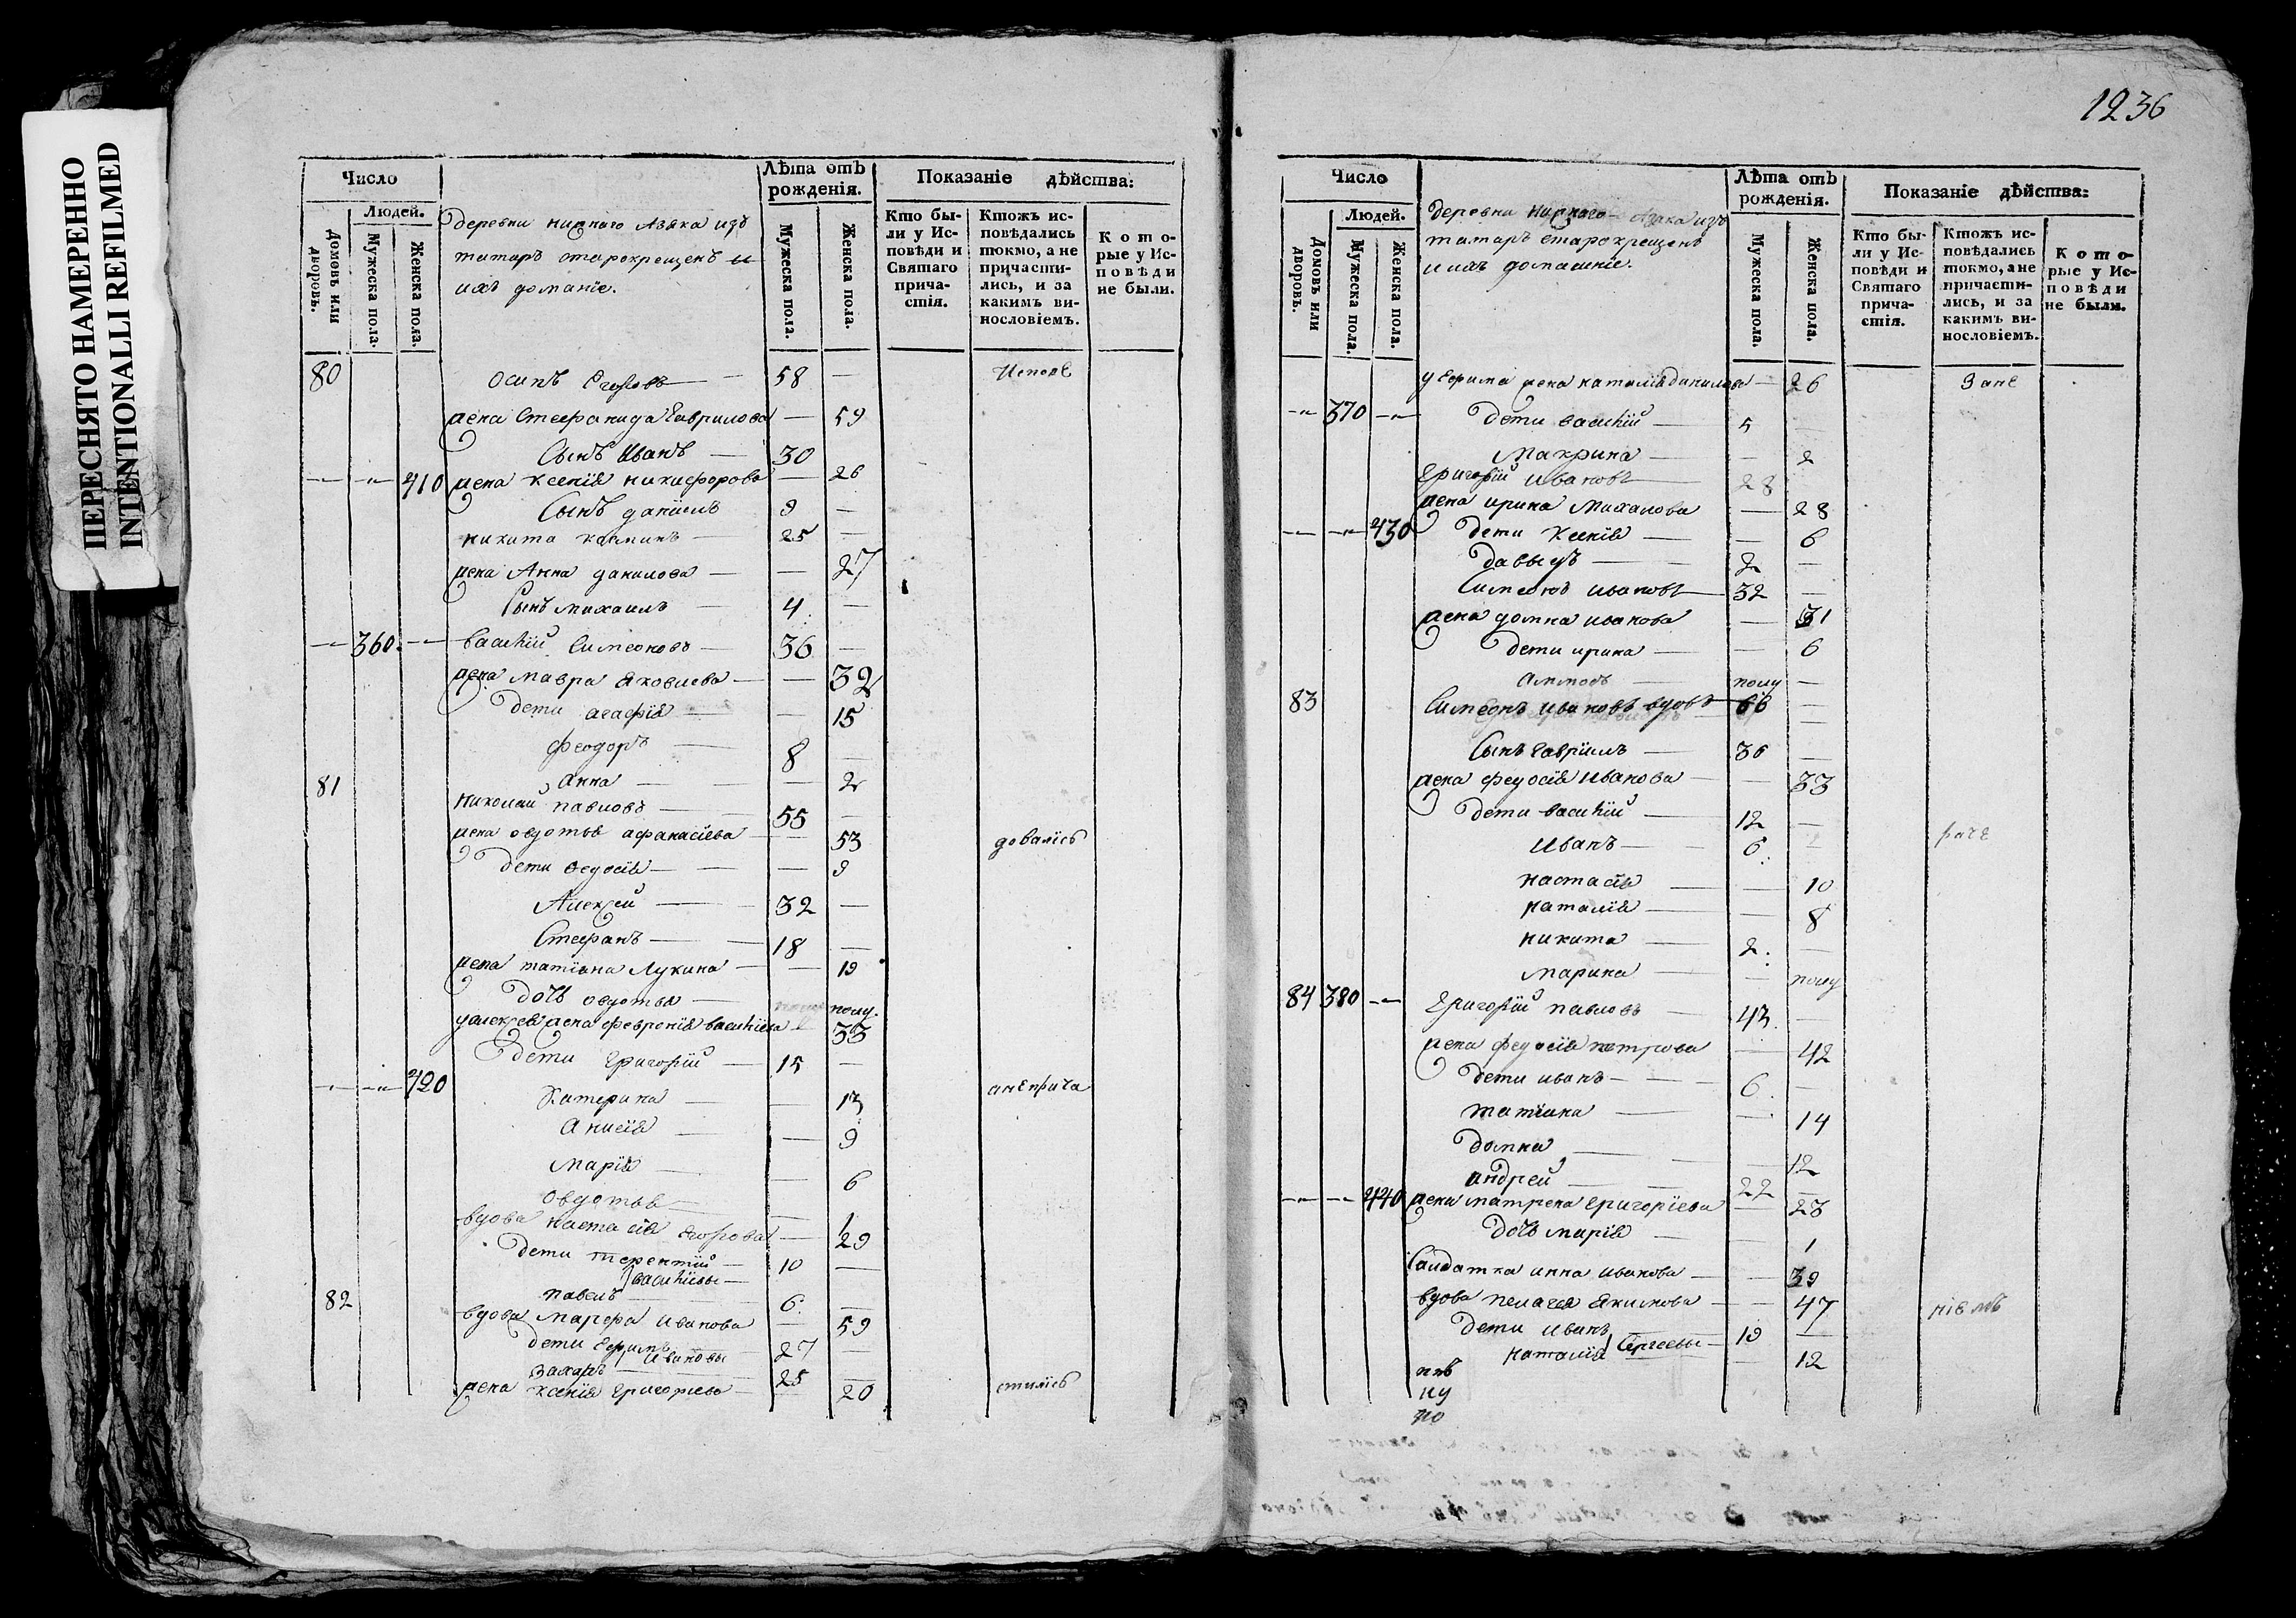 ПЕРЕСНЯТО НАМЕРЕННО
INTENTIONALLI REFILMED
Число
Людей.
Домовъ или дворовъ.
Мужеска пола.
Женска пола.
деревни нижнаго Азяка изъ
татаръ старокрещенъ и
ихъ домашніе.
Лѣта отъ рожденія.
Мужеска пола.
Женска пола.
Показаніе дѣйства:
Кто были у Исповѣди и Святаго причастія.
Ктожъ исповѣдались токмо, а не причастились, и за какимъ винословіемъ.
Которые у Исповѣди не были.
80 осипъ Егоровъ — 58 — Испове
жена Стефанида Гаврилова — 59
Сынъ Иванъ — 30
— — 410 жена ксенія никифорова — 26
Сынъ даниилъ 9 —
никита — 25 —
жена Анна данилова — — 27
Сынъ михаилъ — 4 —
— 360 — василий Симеоновъ — 36 —
жена мавра Яковлева — — 32
дети агафія — — 15
феодоръ — 8 —
81 анна — — 2
николай павловъ — 55 —
жена овдотья афанасиева — 53 довались
дети федосія — — 9
Алексей — 32 —
Стефанъ — 18 —
жена татіана Лукина — — 19
дочь овдотья — полу.
уалексея жена феврония василиева 33
дети григорий — 15 —
— — 420 Катерина — — 13 анеприча
Анисія — — 9
марія — — 6
овдотья — — 1
вдова настасія Егорова — 29
дети терентий — 10 —
василиевы —
82 павелъ — 6 —
вдова марфа иванова — 59
дети Ефимъ — 27 —
ивановы
захаръ — 25 —
жена ксения григориева — — 20 стились
1236
Число
Людей.
Домовъ или дворовъ.
Мужеска пола.
Женска пола.
деревни нижнаго Азяка изъ
татаръ старокрещенъ
и ихъ домашніе.
Лѣта отъ рожденія.
Мужеска пола.
Женска пола.
Показаніе дѣйства:
Кто были у Исповѣди и Святаго причастія.
Ктожъ исповѣдались токмо, а не причастились, и за какимъ винословіемъ.
Которые у Исповѣди не были.
у Ефима жена наталия данилова — 26 Зане
— 370 — дети василий — 5 —
макрина — — 2
григорий ивановъ — 28
жена ирина Михалова — 28
— — 430 дети Ксенія — — 6
давыдъ — 2 —
Симеонъ ивановъ — 32 —
жена домна иванова — 31
дети ирина — — 6
— полу —
83 Симеонъ ивановъ вдовъ 66 —
Сынъ гавриилъ — 36 —
жена федосія иванова — — 33
дети василий — 12 —
иванъ — 6 — раче
настасія — — 10
наталія — — 8
никита — 2 —
марина — — полу
84 380 — григорий павловъ — 43 —
жена федосія петрова — 42
дети иванъ — 6 —
татіана — — 14
домна — — 12
андрей — 22 —
— — 440 жена матрена григориева — 23
дочь марія — — 1
Салдатка анна иванова — — 39
вдова пелагея Якимова — — 47 ніемъ
дети иванъ — 19 —
Сергеевы —
наталія — 12